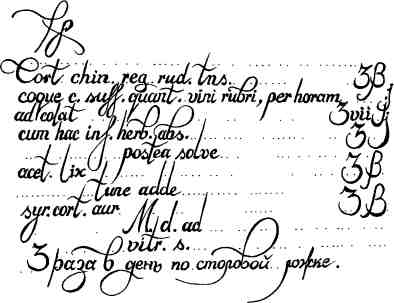 Rp
Cort chin. reg rud. tns. ℥β
coque c. suff. quant. vini rubri, per horam
ad colat ℥vii j
cum hac inf. herb. abs. ℥j
postea solve
acet. lix ℥β
tunc adde
syr. cort. aur ℥β
M. d. ad
vitr. s.
3 раза в день по столовой ложке.